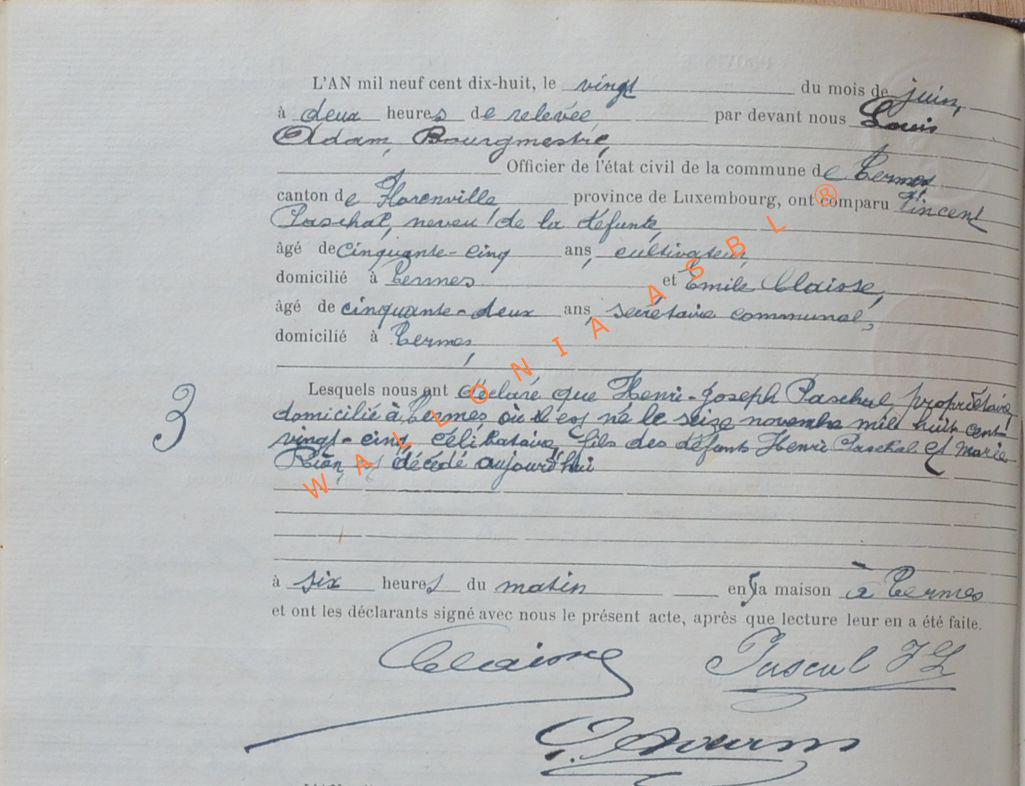 L'AN mil neuf cent dix-huit, le vingt du mois de juin,
à deux heures de relevée, par devant nous Louis
Adam, Bourgmestre,
Officier de l'état civil de la commune de Termes
canton de Florenville province de Luxembourg, ont comparu Vincent
Paschal, neveu de la défunte,
âgé de cinquante-cinq ans, cultivateur,
domicilié à Termes et Emile Claisse,
âgé de cinquante-deux ans, secrétaire communal,
domicilié à Termes,
3
Lesquels nous ont déclaré que Henri-Joseph Paschal, propriétaire,
domicilié à Termes, où il est né le seize novembre mil huit cent
vingt-cinq, célibataire, fils des défunts Henri Paschal et Marie
décédé aujourd'hui
à six heures du matin en sa maison à Termes
et ont les déclarants signé avec nous le présent acte, après que lecture leur en a été faite.
Claisse Pascal
WALLONIA ASBL ®